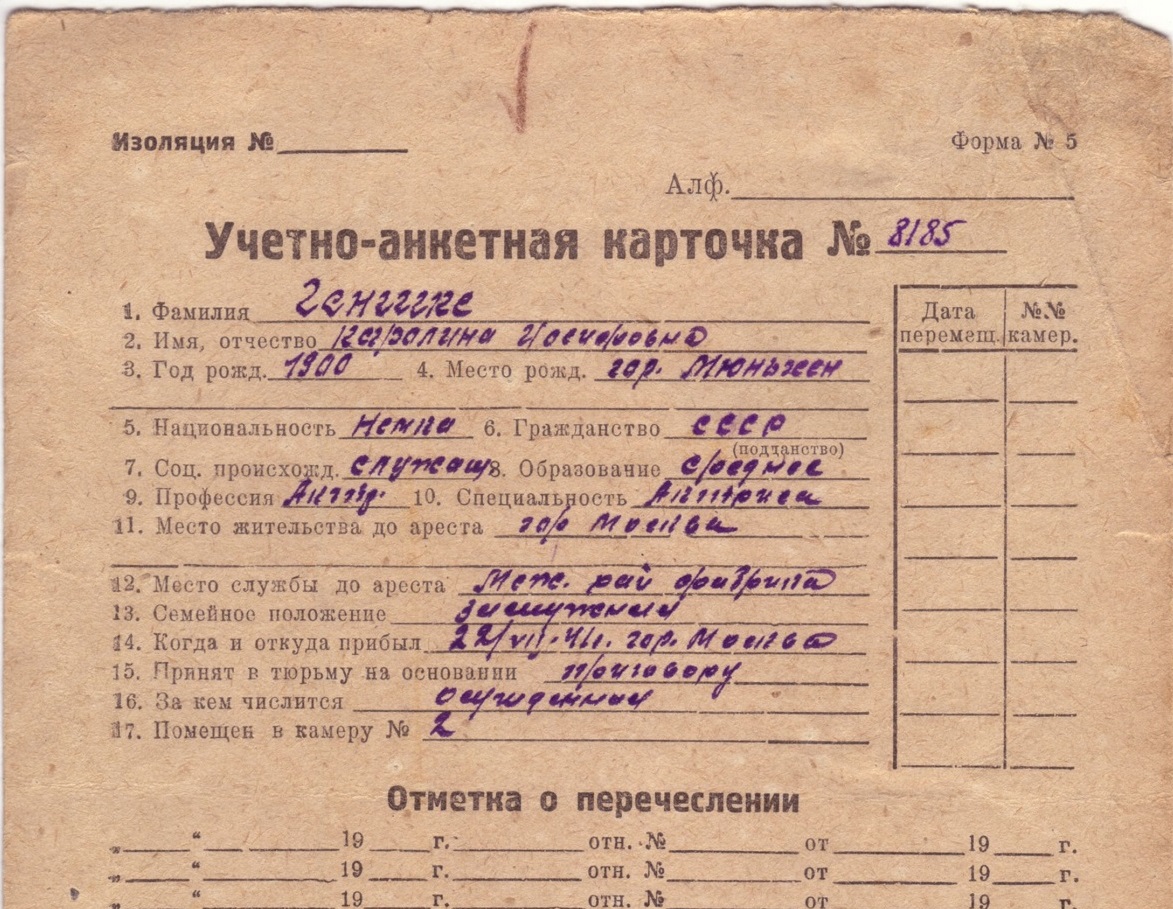 Изоляция №
Форма № 5
Алф.
Учетно-анкетная карточка № 8185
1. Фамилия Геништке
2. Имя, отчество Каролина Иосифовна
3. Год рожд. 1900 4. Место рожд. гор. Мюньхен
5. Национальность Немка 6. Гражданство СССР
(подданство)
7. Соц. происхожд. служащ 8. Образование среднее
9. Профессия 10. Специальность Актриса
11. Место жительства до ареста гор Москва
12. Место службы до ареста Меж. рай фабрика
13. Семейное положение замужняя
14. Когда и откуда прибыл 22/VII-41г. гор. Москва
15. Принят в тюрьму на основании приговору
16. За кем числится осужденная
17. Помещен в камеру № 2
Дата перемещ. №№ камер.
Отметка о перечеслении
„ “ 19 г. отн. № от 19 г.
„ “ 19 г. отн. № от 19 г.
„ “ 19 г. отн. № от 19 г.